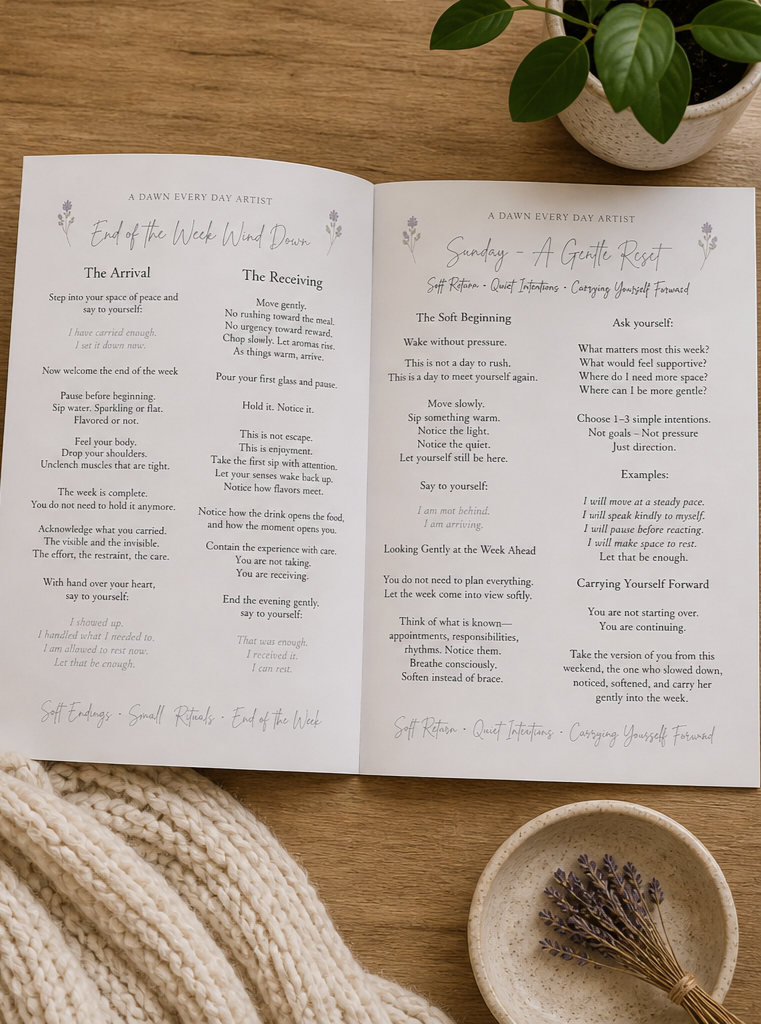 A DAWN EVERY DAY ARTIST
End of the Week Wind Down
The Arrival
Step into your space of peace and
say to yourself:
I have carried enough.
I set it down now.
Now welcome the end of the week
Pause before beginning.
Sip water. Sparkling or flat.
Flavored or not.
Feel your body.
Drop your shoulders.
Unclench muscles that are tight.
The week is complete.
You do not need to hold it anymore.
Acknowledge what you carried.
The visible and the invisible.
The effort, the restraint, the care.
With hand over your heart,
say to yourself:
I showed up.
I handled what I needed to.
I am allowed to rest now.
Let that be enough.
The Receiving
Move gently.
No rushing toward the meal.
No urgency toward reward.
Chop slowly. Let aromas rise.
As things warm, arrive.
Pour your first glass and pause.
Hold it. Notice it.
This is not escape.
This is enjoyment.
Take the first sip with attention.
Let your senses wake back up.
Notice how flavors meet.
Notice how the drink opens the food,
and how the moment opens you.
Contain the experience with care.
You are not taking.
You are receiving.
End the evening gently,
say to yourself:
That was enough.
I received it.
I can rest.
Soft Endings · Small Rituals · End of the Week
A DAWN EVERY DAY ARTIST
Sunday - A Gentle Reset
Soft Return · Quiet Intentions · Carrying Yourself Forward
The Soft Beginning
Wake without pressure.
This is not a day to rush.
This is a day to meet yourself again.
Move slowly.
Sip something warm.
Notice the light.
Notice the quiet.
Let yourself still be here.
Say to yourself:
I am not behind.
I am arriving.
Looking Gently at the Week Ahead
You do not need to plan everything.
Let the week come into view softly.
Think of what is known—
appointments, responsibilities,
rhythms. Notice them.
Breathe consciously.
Soften instead of brace.
Ask yourself:
What matters most this week?
What would feel supportive?
Where do I need more space?
Where can I be more gentle?
Choose 1–3 simple intentions.
Not goals – Not pressure
Just direction.
Examples:
I will move at a steady pace.
I will speak kindly to myself.
I will pause before reacting.
I will make space to rest.
Let that be enough.
Carrying Yourself Forward
You are not starting over.
You are continuing.
Take the version of you from this
weekend, the one who slowed down,
noticed, softened, and carry her
gently into the week.
Soft Return · Quiet Intentions · Carrying Yourself Forward